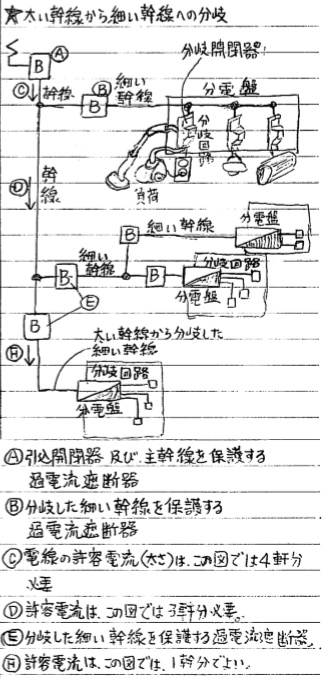 ★太い幹線から細い幹線への分岐
Ⓐ
B
分岐開閉器
Ⓒ
幹線
Ⓑ
B
細い
幹線
分電盤
分岐回路
負荷
Ⓓ
幹線
細い幹線
分電盤
B
細い
幹線
B
B
分岐回路
分電盤
Ⓔ
B
太い幹線から分岐した
細い幹線
Ⓗ
分岐回路
分電盤
Ⓐ引込開閉器 及び 主幹線を保護する
過電流遮断器
Ⓑ分岐した細い幹線を保護する
過電流遮断器
Ⓒ電線の許容電流(太さ)は、この図では4軒分
必要
Ⓓ許容電流は、この図では3軒分必要。
Ⓔ分岐した細い幹線を保護する過電流遮断器。
Ⓗ許容電流は、この図では、1軒分でよい。